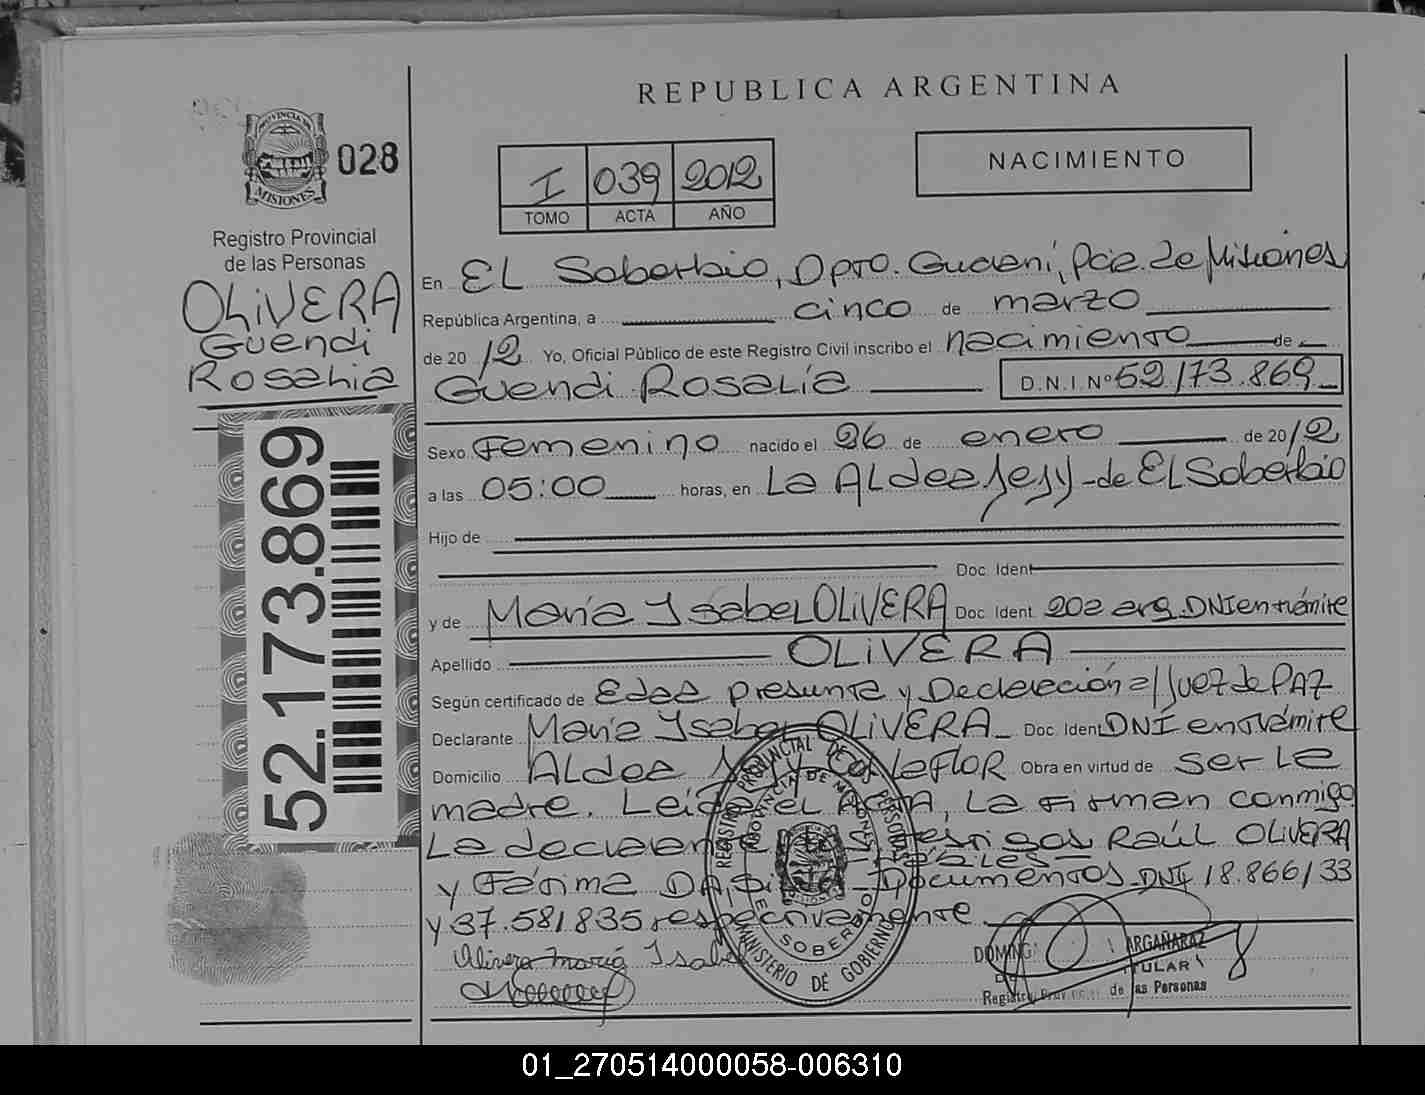 REPUBLICA ARGENTINA
PROVINCIA DE
MISIONES
028
Registro Provincial
de las Personas
OLiVERA
Guendi
Rosalia
52.173.869
I 039 2012
TOMO ACTA AÑO
NACIMIENTO
En EL Soberbio, Dpto. Guaraní, Pcia. de Misiones
República Argentina, a cinco de marzo
de 20 12 Yo, Oficial Público de este Registro Civil inscribo el nacimiento de
Guendi Rosalía D.N.I. Nº 52.173.869
Sexo Femenino nacido el 26 de enero de 20 12
a las 05:00 horas, en La Aldea Jejy - de EL Soberbio
Hijo de
Doc. Ident
y de María Isabel OLiVERA Doc. Ident. 20a arg. DNI en trámite
Apellido OLiVERA
Según certificado de Edad presunta y Declaración a/ Juez de PAZ
Declarante María Isabel OLiVERA Doc. Ident DNI en trámite
Domicilio ALdea FLOR Obra en virtud de ser la
madre. Leída el Acta, La firman conmigo
La declarante testigos Raúl OLiVERA
y Fátima Documentos DNI 18.866/33
y 37.581835 respectivamente
Olivera María Isabel
REGISTRO PROVINCIAL DE LAS PERSONAS
PROVINCIA DE MISIONES
EL SOBERBIO
MINISTERIO DE GOBIERNO
DOMING ARGAÑARAZ
TITULAR
Registro Prov. de las Personas
01_270514000058-006310